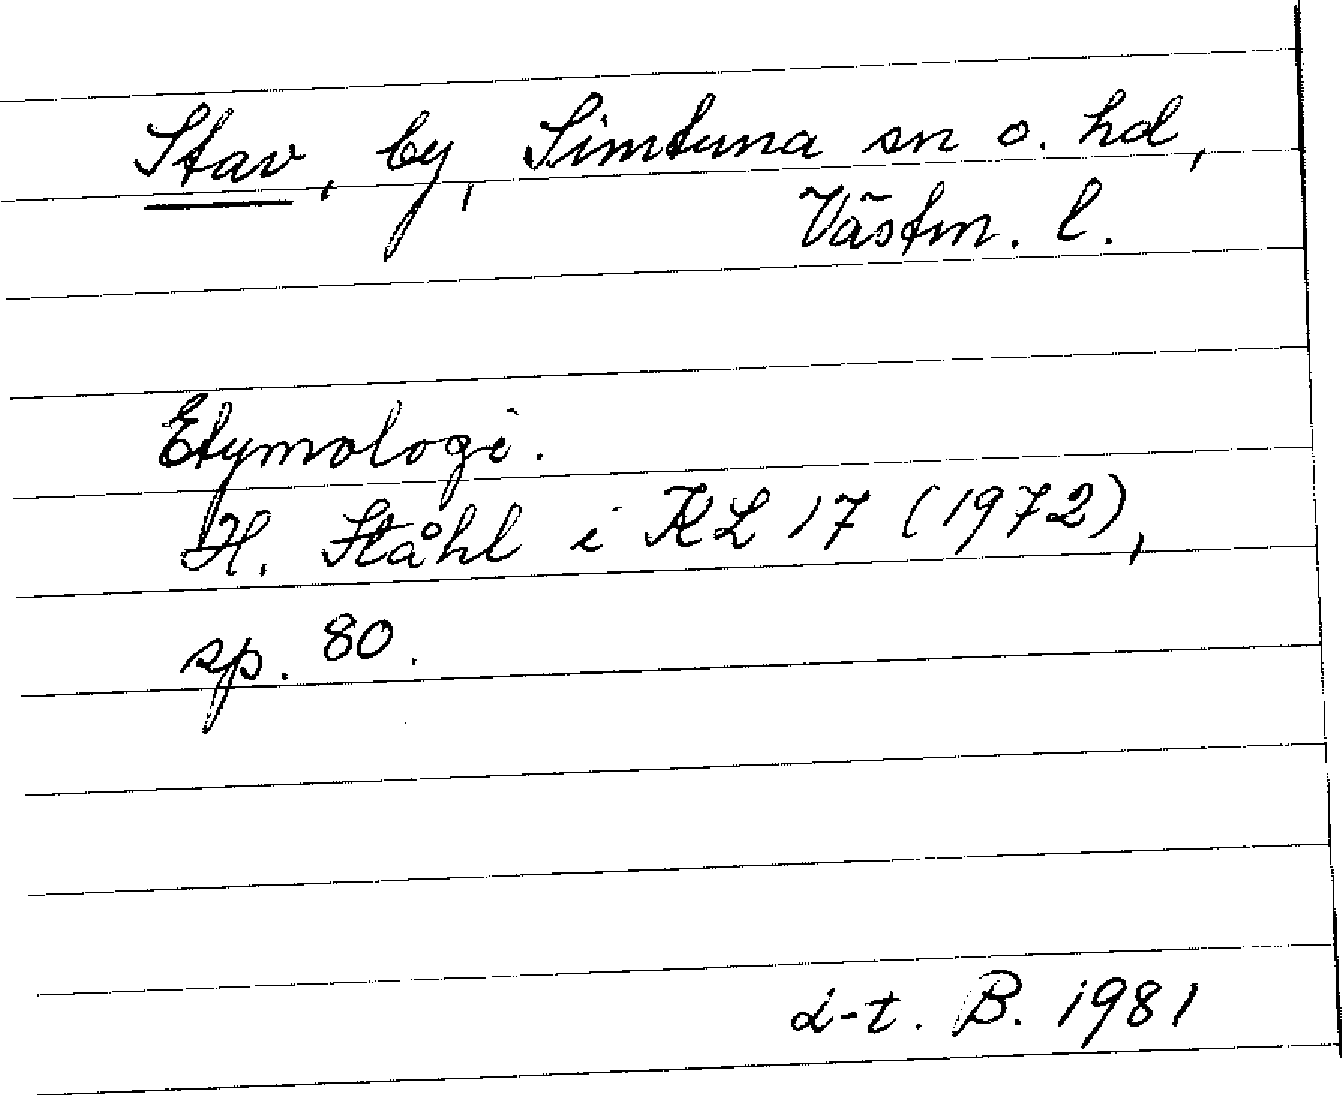 Stav, by, Simtuna sn o. hd,
Västm. l.
Etymologi.
H. Ståhl i KL 17 (1972),
sp. 80.
L-t. B. 1981